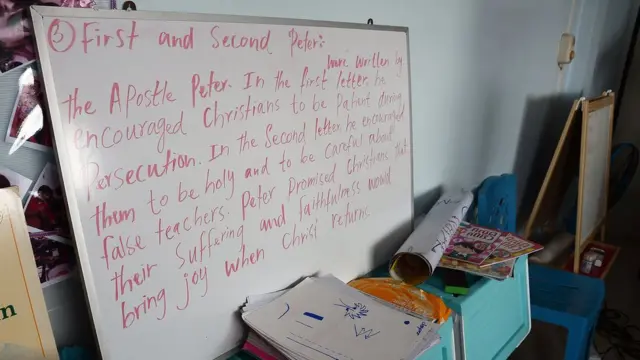 ③ First and Second Peter:
were written by
the Apostle Peter. In the first letter, he
encouraged Christians to be Patient during
Persecution. In the Second letter, he encouraged
them to be holy and to be careful about
false teachers. Peter Promised Christians that
their suffering and faithfulness would
bring joy when Christ returns.
n